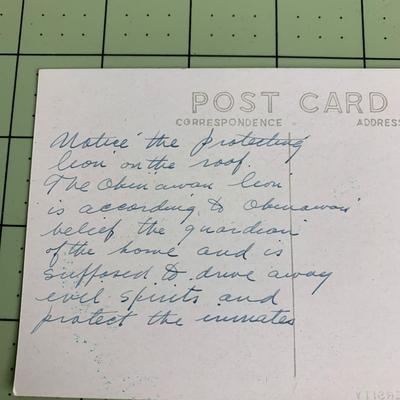 POST CARD
CORRESPONDENCE ADDRESS
Notice the protecting
lion on the roof.
The Okinawan lion
is according to Okinawan
belief the guardian
of the home and is
supposed to drive away
evil spirits and
protect the inmates